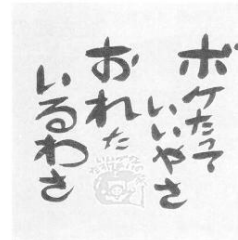 ボケたって
いいやさ
おれた
いるわさ